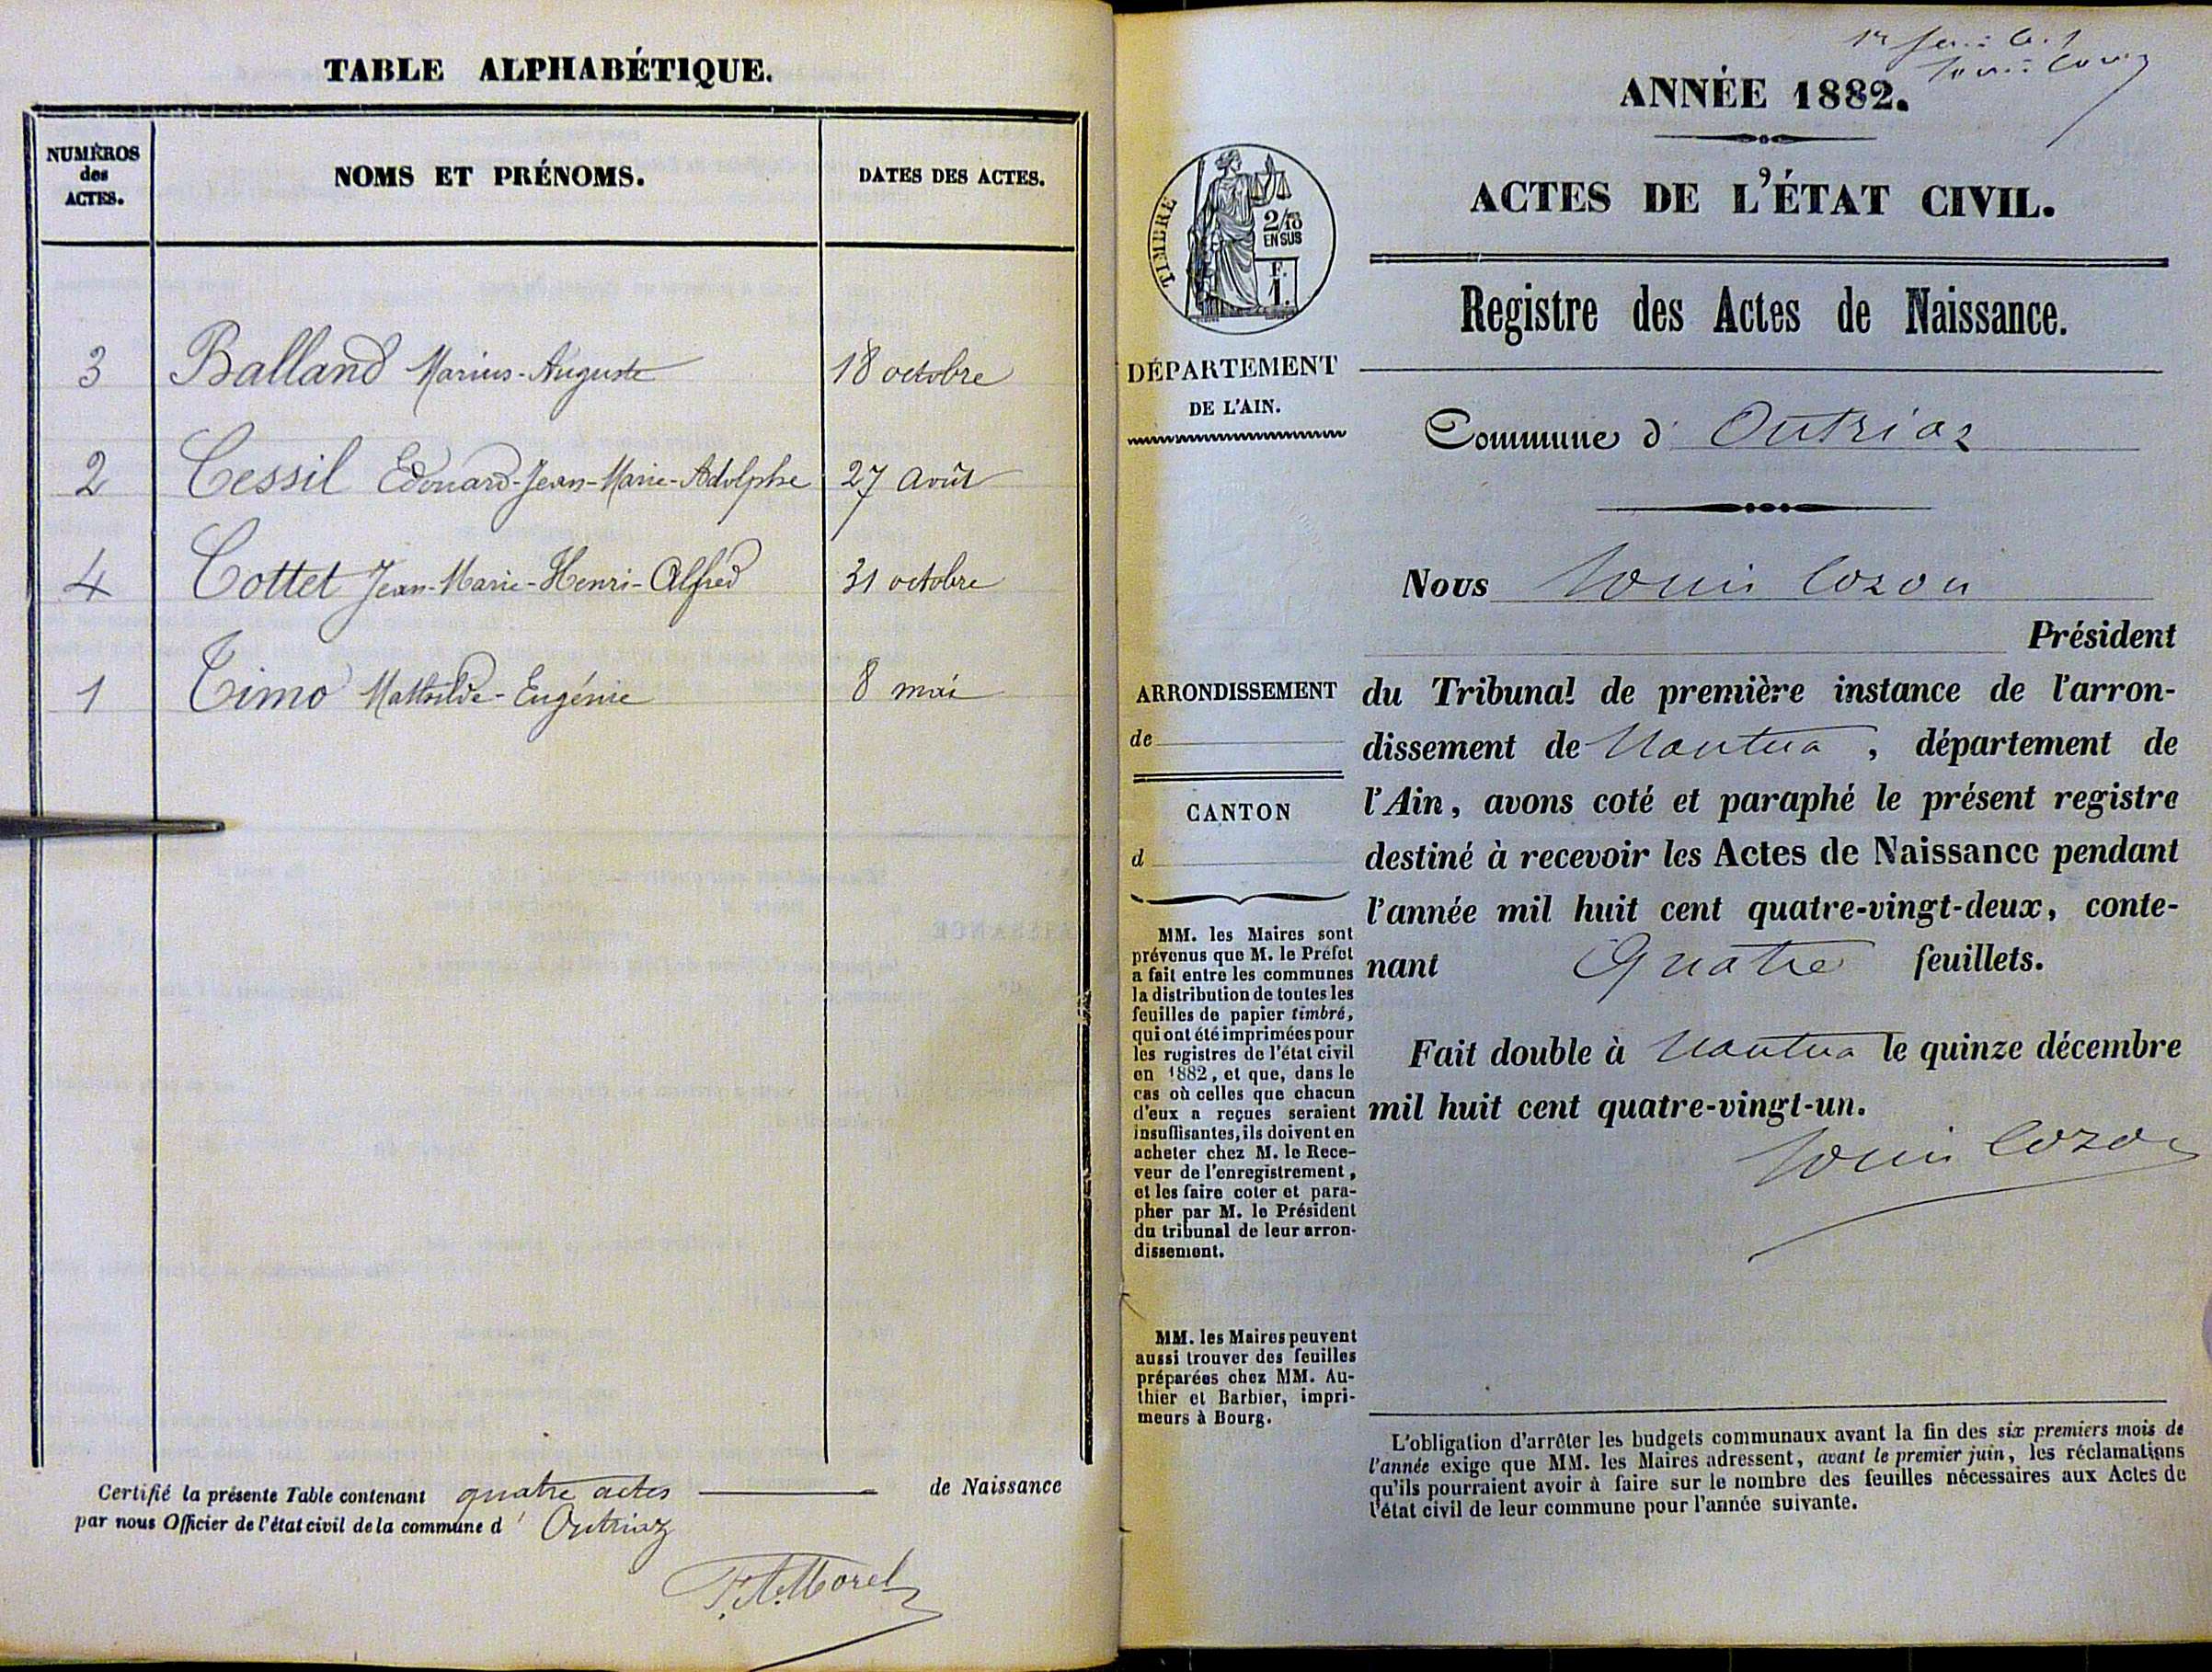 TABLE ALPHABÉTIQUE.
NUMÉROS des ACTES.
NOMS ET PRÉNOMS.
DATES DES ACTES.
3 Balland Marius-Auguste 18 octobre
2 Cessil Edouard-Jean-Marie-Adolphe 27 Août
4 Cottet Jean-Marie-Henri-Alfred 31 octobre
1 Timo Mathilde-Eugénie 8 mai
Certifié la présente Table contenant quatre actes de Naissance
par nous Officier de l'état civil de la commune d' Outriaz
F. A. Morel
ANNÉE 1882.
ACTES DE L'ÉTAT CIVIL.
Registre des Actes de Naissance.
TIMBRE
2/10
EN SUS
F.
1.
DÉPARTEMENT
DE L'AIN.
Commune d' Outriaz
Nous Louis Cozon
Président
du Tribunal de première instance de l'arron-
dissement de Nantua, département de
l'Ain, avons coté et paraphé le présent registre
destiné à recevoir les Actes de Naissance pendant
l'année mil huit cent quatre-vingt-deux, conte-
nant Quatre feuillets.
Fait double à Nantua le quinze décembre
mil huit cent quatre-vingt-un.
Louis Cozon
ARRONDISSEMENT
de
CANTON
d
MM. les Maires sont
prévenus que M. le Préfet
a fait entre les communes
la distribution de toutes les
feuilles de papier timbré,
qui ont été imprimées pour
les registres de l'état civil
en 1882, et que, dans le
cas où celles que chacun
d'eux a reçues seraient
insuffisantes, ils doivent en
acheter chez M. le Rece-
veur de l'enregistrement,
et les faire coter et para-
pher par M. le Président
du tribunal de leur arron-
dissement.
MM. les Maires peuvent
aussi trouver des feuilles
préparées chez MM. Au-
thier et Barbier, impri-
meurs à Bourg.
L'obligation d'arrêter les budgets communaux avant la fin des six premiers mois de
l'année exige que MM. les Maires adressent, avant le premier juin, les réclamations
qu'ils pourraient avoir à faire sur le nombre des feuilles nécessaires aux Actes de
l'état civil de leur commune pour l'année suivante.